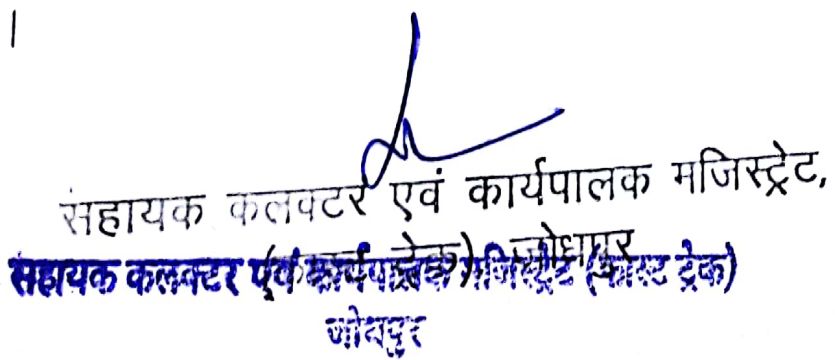 ।
सहायक कलक्टर एवं कार्यपालक मजिस्ट्रेट,
(फास्ट ट्रेक) जोधपुर
सहायक कलक्टर एवं कार्यपालक मजिस्ट्रेट (फास्ट ट्रेक)
जोधपुर